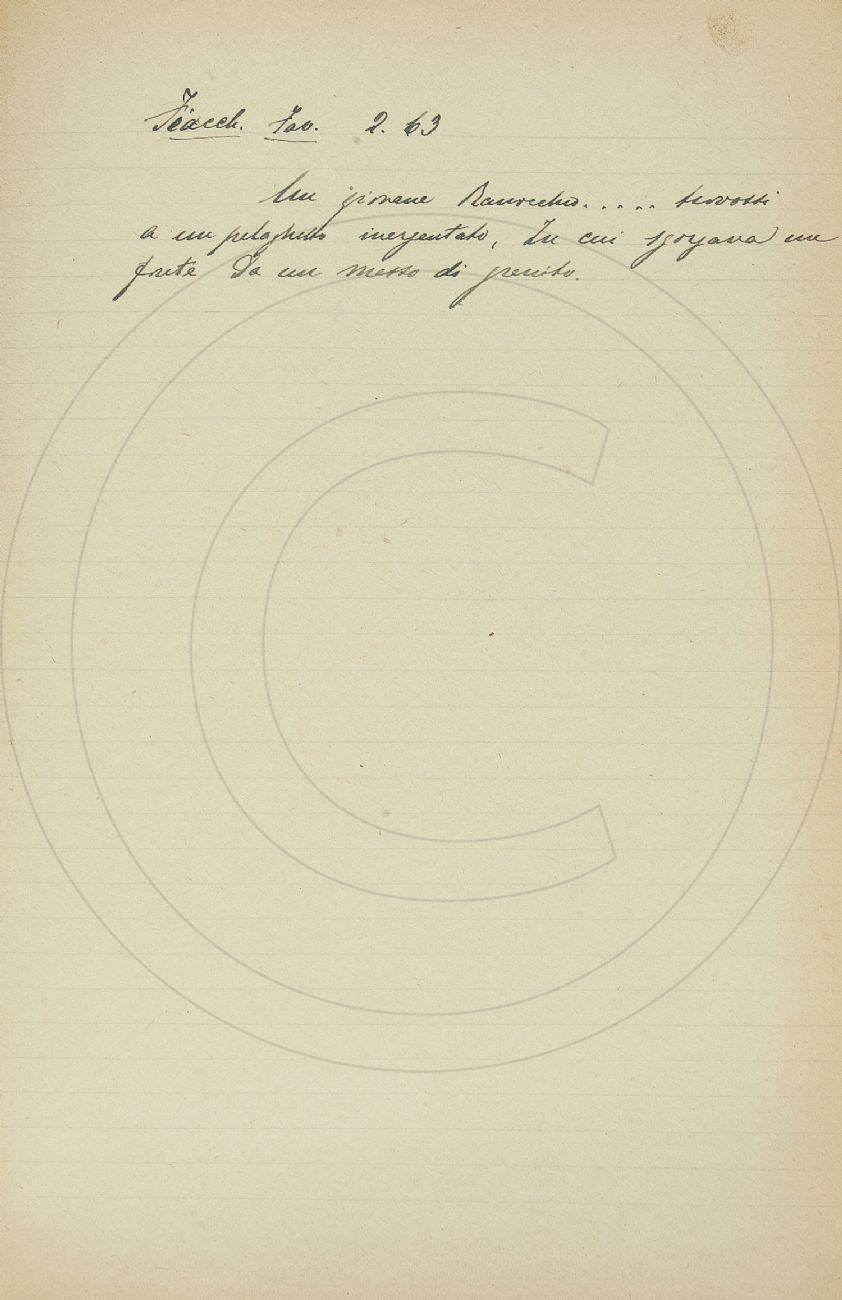 Fiacch. Fav. 2. 63
Un giovane Ranocchio..... trovossi
a un pelaghetto inargentato, In cui sgorgava un
fonte Da un masso di granito.